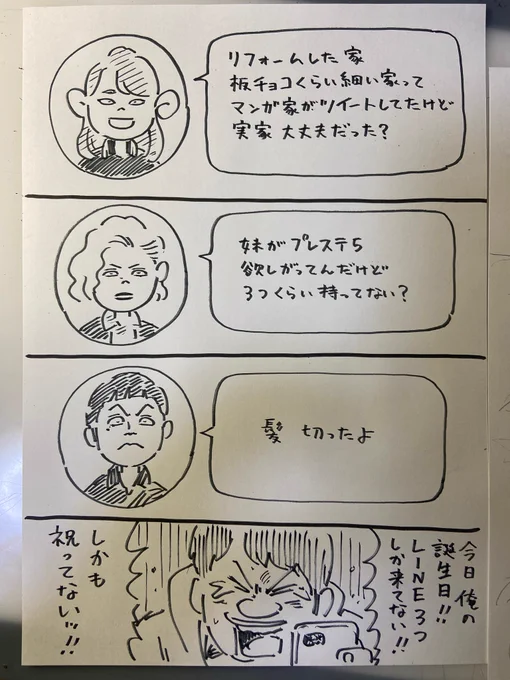 リフォームした家
板チョコくらい細い家って
マンガ家がツイートしてたけど
実家 大丈夫だった?
妹がプレステ5
欲しがってんだけど
3つくらい持ってない?
髪 切ったよ
今日俺の
誕生日!!
LINE3つ
しか来てない!!
しかも
祝ってないッ!!